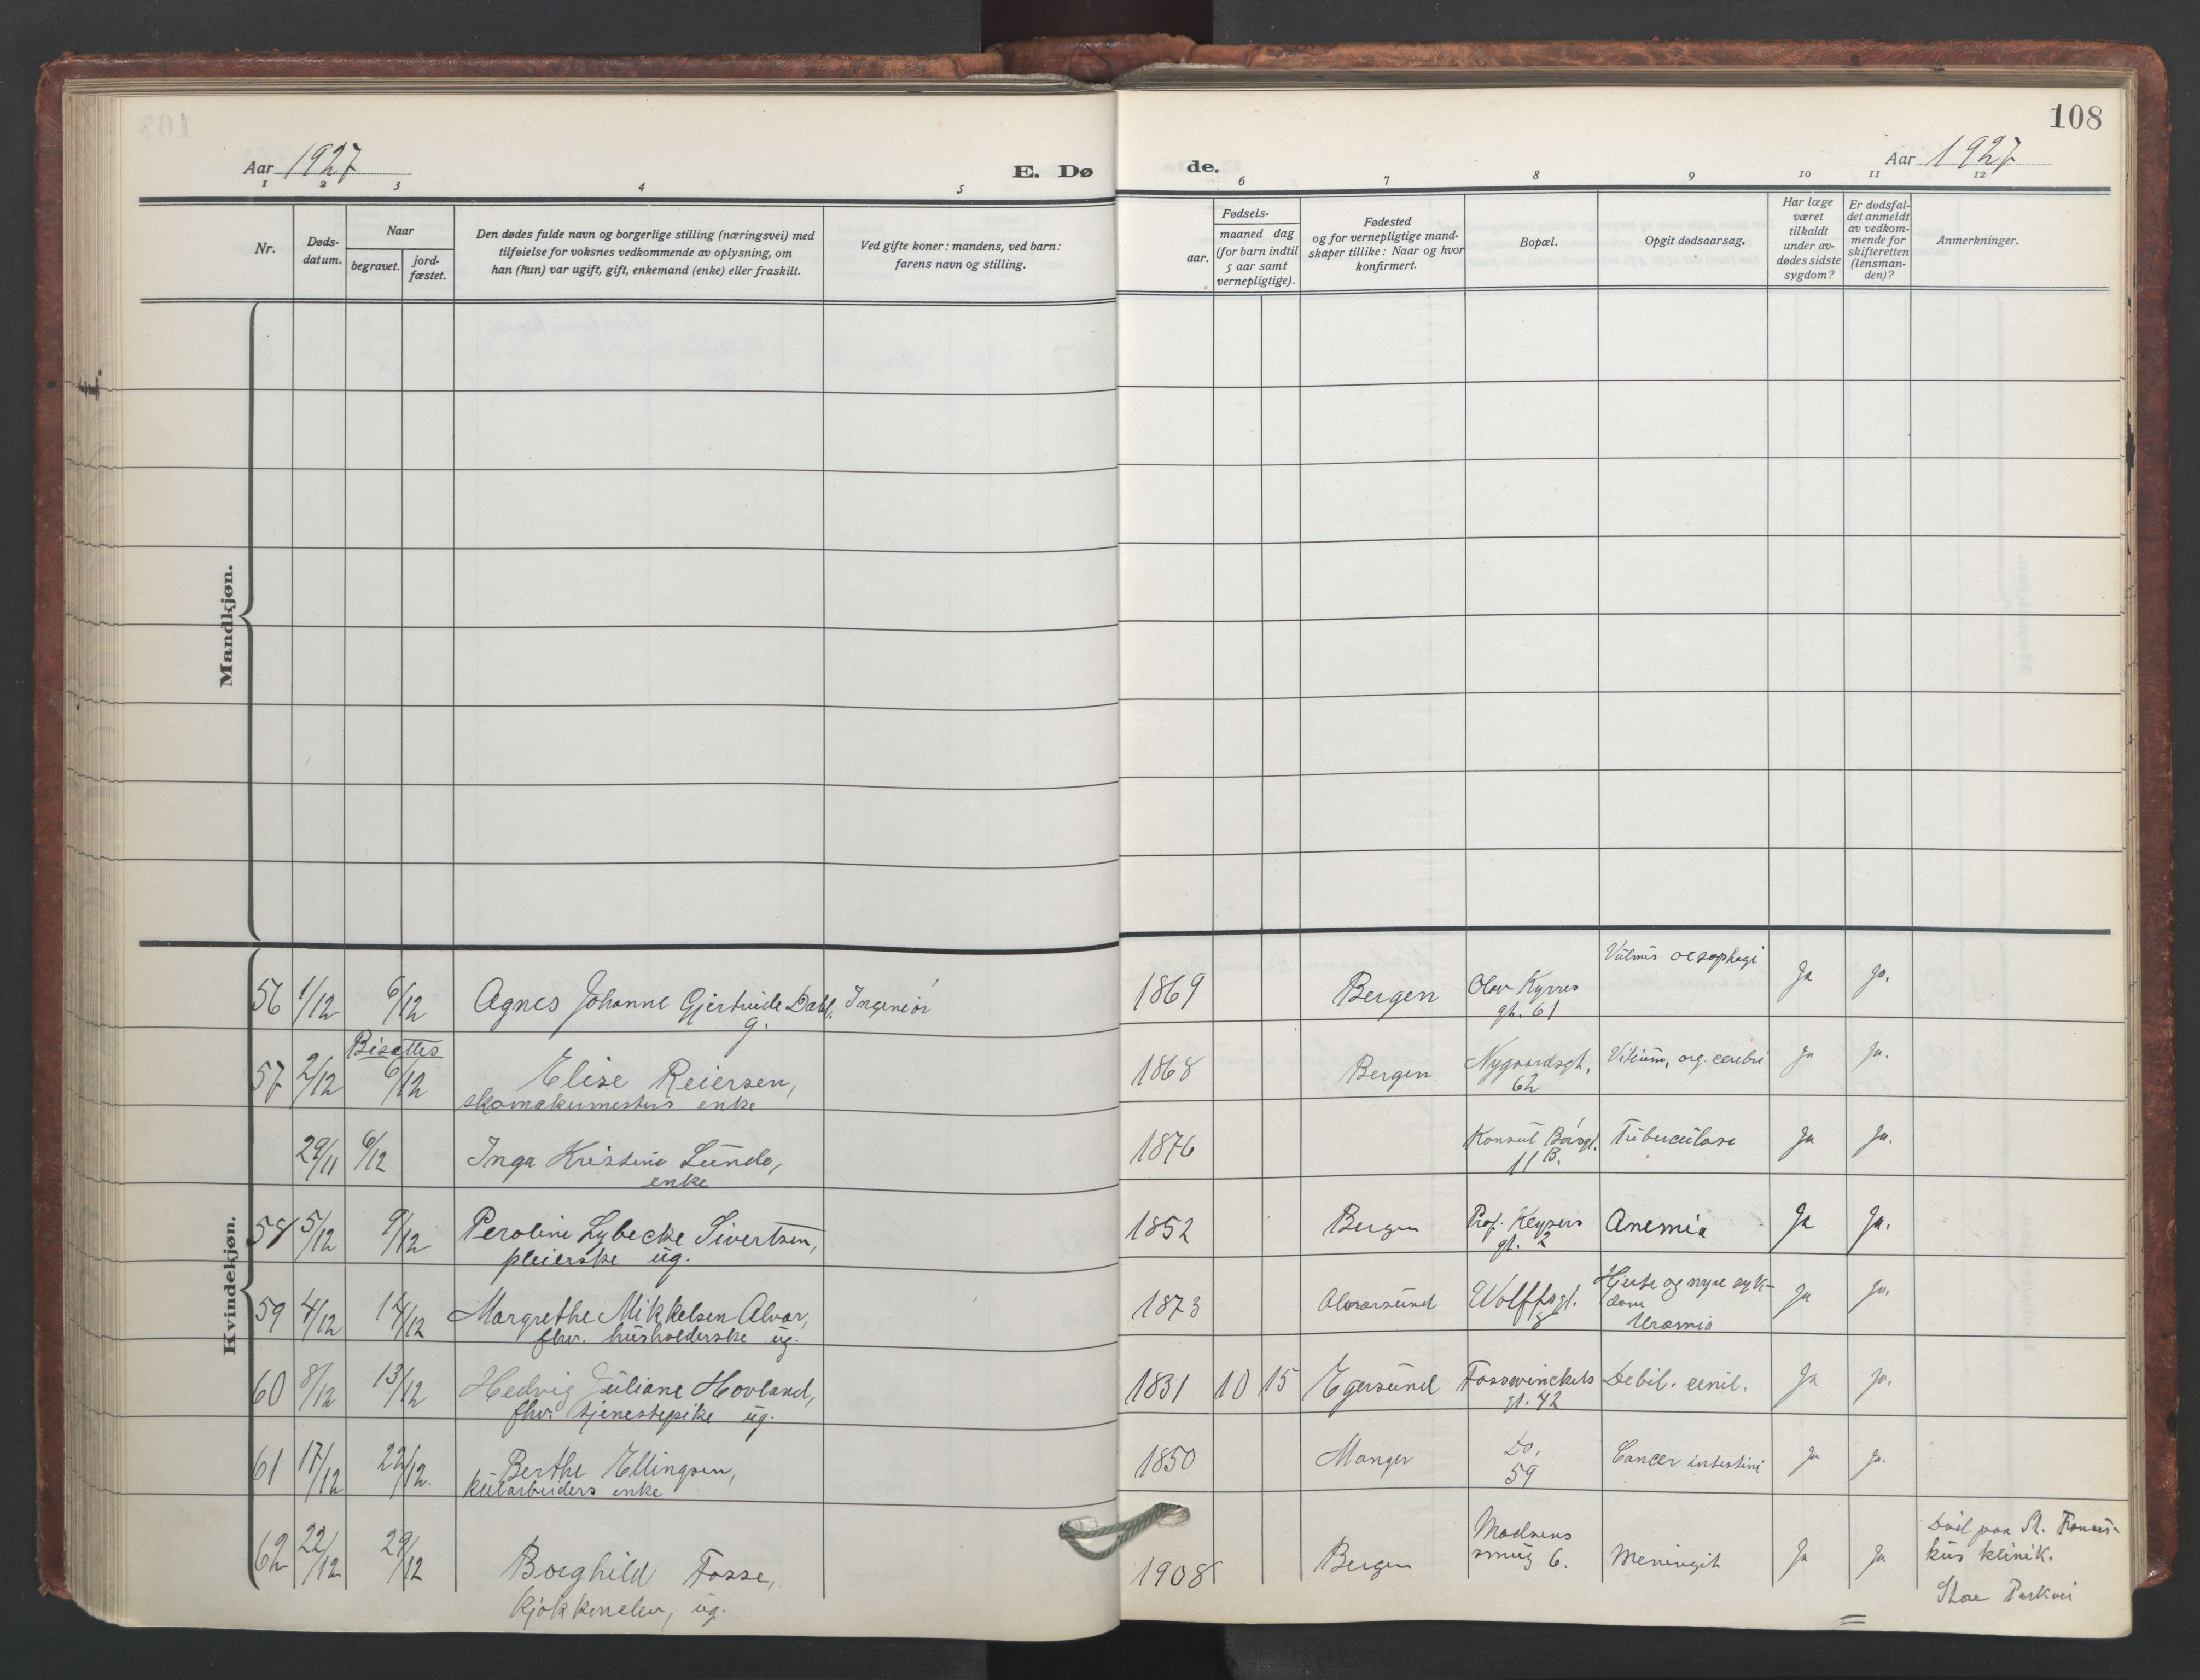 108
Aar 1927
E. Dø de.
Aar 1927
1 2 3 4 5 6 7 8 9 10 11 12
Nr.
Døds-
datum.
Naar
begravet.
jord-
fæstet.
Den dødes fulde navn og borgerlige stilling (næringsvei) med
tilføielse for voksnes vedkommende av oplysning, om
han (hun) var ugift, gift, enkemand (enke) eller fraskilt.
Ved gifte koner: mandens, ved barn:
farens navn og stilling.
Fødsels-
aar.
maaned dag
(for barn indtil
5 aar samt
vernepligtige).
Fødested
og for vernepligtige mand-
skaper tillike: Naar og hvor
konfirmert.
Bopæl.
Opgit dødsaarsag.
Har læge
været
tilkaldt
under av-
dødes sidste
sygdom?
Er dødsfal-
det anmeldt
av vedkom-
mende for
skifteretten
(lensman-
den)?
Anmerkninger.
Mandkjøn.
Kvindekjøn.
56 1/12 6/12 Agnes Johanne Gjertrude Dahl, Ingeniør 1869 Bergen Olav Kyrres oesophagi Ja Ja.
g. gt. 61
Bisættes
57 2/12 6/12 Elise Reiersen, 1868 Bergen Nygaardsgt. Vitium, org. cerebri Ja Ja.
skomakermesters enke 62
29/11 6/12 Inga Kristine Lunde, 1876 Konsul Børsgt. Tuberculose Ja Ja.
enke 11 B.
58 5/12 9/12 Peroline Lybecke Sivertsen, 1852 Bergen Prof. Keysers Anemia Ja Ja.
pleierske ug. gt. 2
59 4/12 14/12 Margrethe Mikkelsen Alvær, 1873 Alversund Wolffsgt. Hjerte og nyre syk-
fhv. husholderske ug. 8 dom
Uræmia Ja Ja.
60 8/12 13/12 Hedvig Juliane Hovland, 1831 10 15 Egersund Fosswinckels Debil. cenil. Ja Ja.
fhv. tjenestepike ug. gt. 42
61 17/12 22/12. Berthe Ellingsen, 1850 Manger Do. Cancer intestini Ja Ja.
kularbeiders enke 59
62 22/12 29/12 Borghild Fosse, 1908 Bergen Madsens Meningit Ja Ja Død paa St. Francis-
kjøkkenelev, ug. smug 6. kus klinik.
Store Parkvei